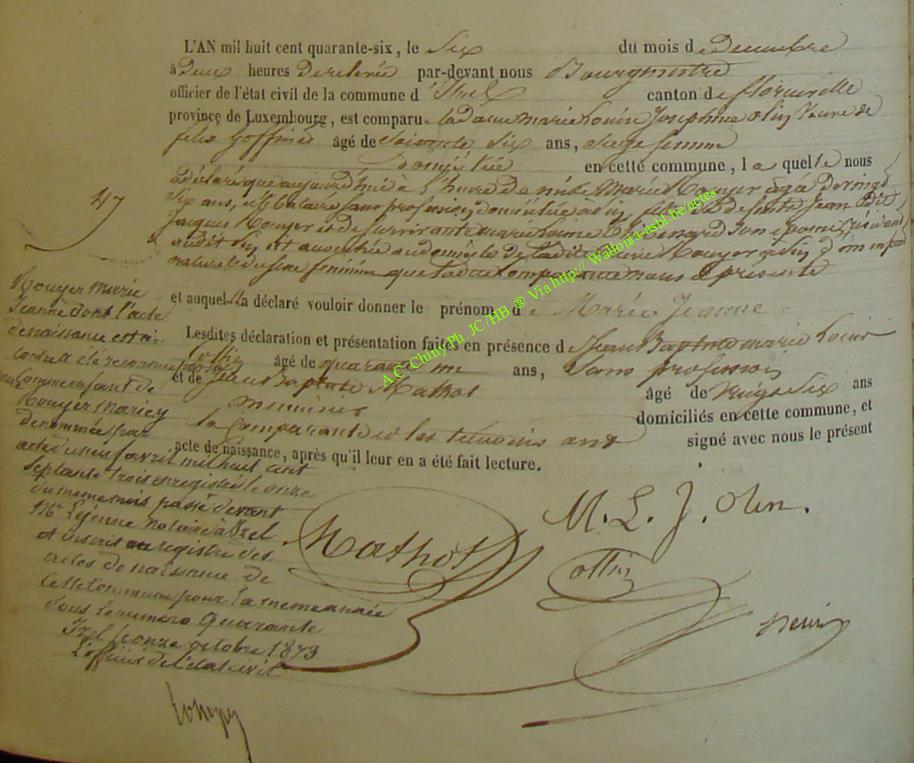 L'AN mil huit cent quarante-six, le Six du mois de decembre
à deux heures de relevée par-devant nous Bourgmestre
officier de l'état civil de la commune d'Izel canton de florenville
province de Luxembourg, est comparu la dame marie Louise Josephine olin Veuve de
felix Goffinet âgé de Soixante Six ans, Sage femme
Domiciliée en cette commune, laquelle nous
a déclaré que aujourd'hui à heure de Marie Rouyer agée de vingt
Six ans, Celibataire Sans profession domiciliée à fille de defunt Jean Bte
Jacques Rouyer et de Survivante marie
audit et au domicile de ladite Rouyer
naturel du sexe feminin que ladite Comparante nous a présenté
et auquel la déclaré vouloir donner le prénom de Marie Jeanne
Lesdites déclaration et présentation faites en présence de Jean Baptiste marie Louis
Collin âgé de quarante un ans, Sans profession
et de Jean Baptiste Mathot âgé de vingt Six ans
menuisier domiciliés en cette commune, et
la Comparante et les témoins ont signé avec nous le présent
acte de naissance, après qu'il leur en a été fait lecture.
47
Rouyer Marie
Jeanne dont l'acte
de naissance est ci-
Contre a été reconnue
Comme enfant de
Rouyer Marie y
denommée par
acte du neuf avril mil huit cent
Septante trois enregistré le onze
du meme mois passé devant
Me Lejeune Notaire à Izel
et inscrit au registre des
actes de naissance de
Cette Commune pour la meme année
Sous le numero Quarante
Izel le onze octobre 1873
L'officier de l'état civil
M. L. J. Olin.
Mathot
Collin
A.C. Chiny Ph. JC/HB ® Via http:// Wallonia-asbl.be/ngies